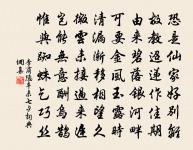 恐是仙家好別離
故教迢遞作佳期
由來碧落銀河畔
可要金風玉露時
清漏漸移相望久
微雲未接過來遲
豈能無意酬烏鵲
惟與蜘蛛乞巧絲
李商隱辛未七夕 詞典
網集